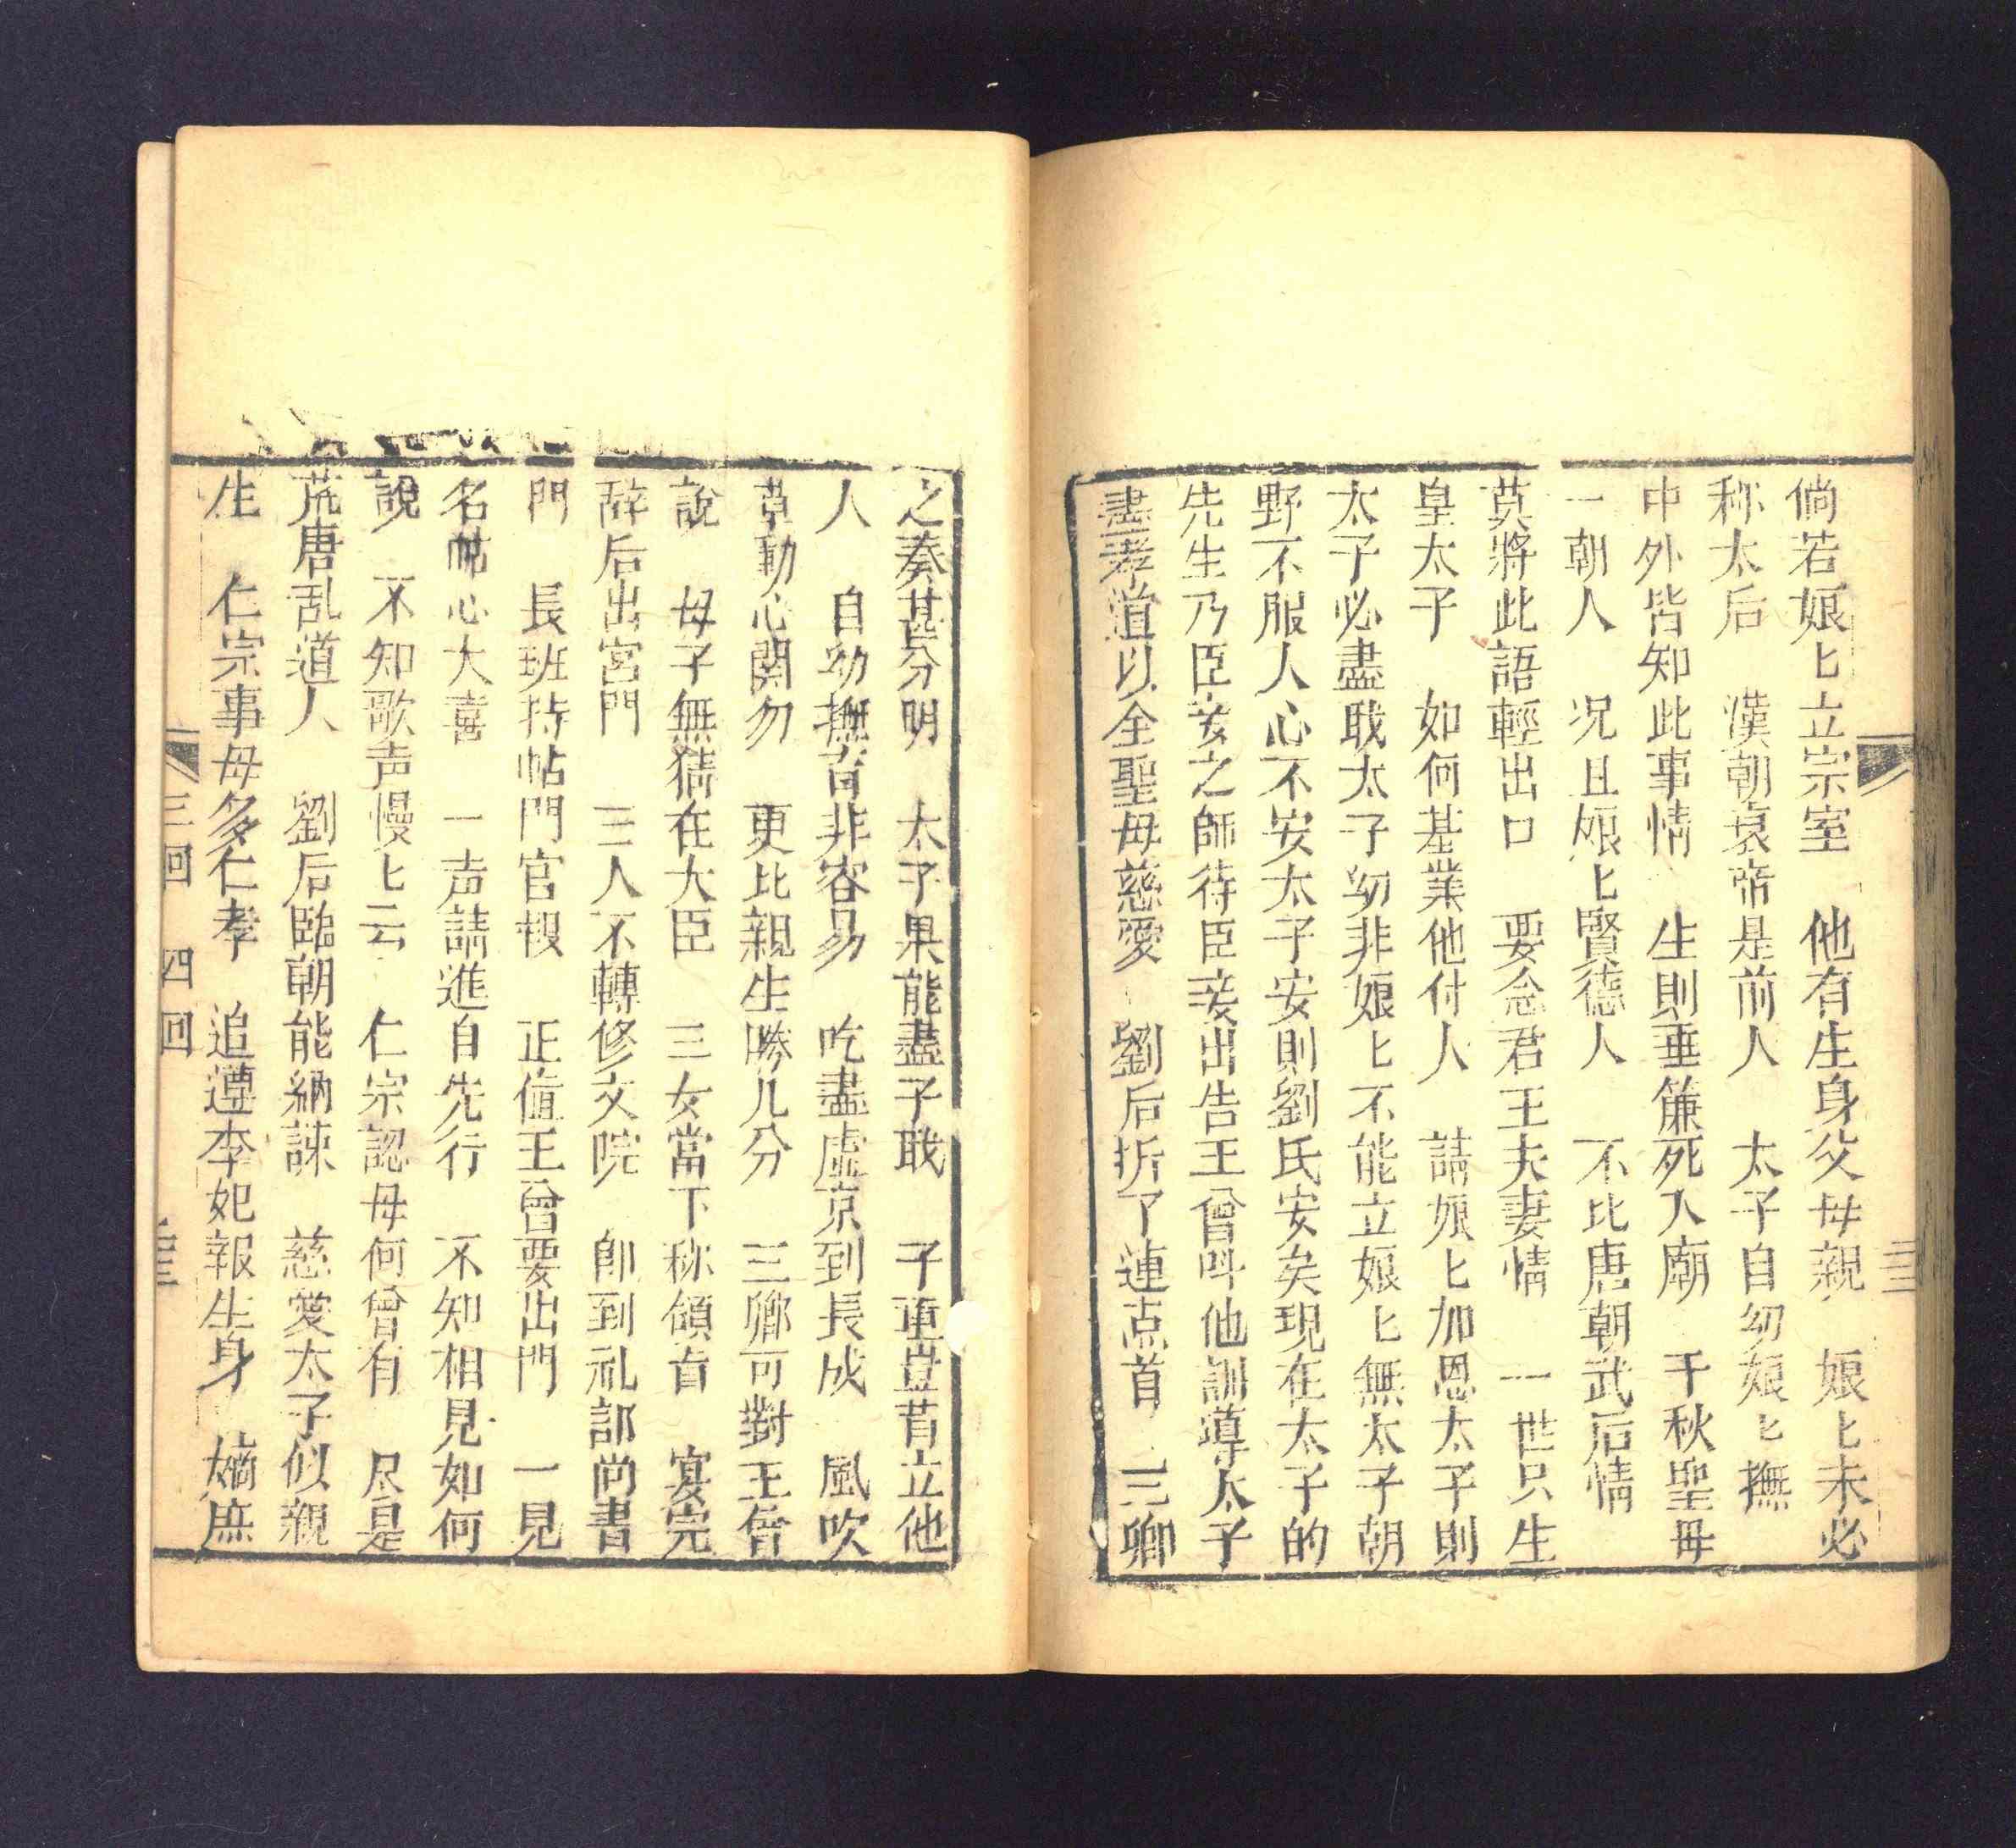 倘若娘匕立宗室　他有生身父母親　娘匕未必
称太后　漢朝哀帝是前人　太子自幼娘匕撫
中外皆知此事情　生則垂簾死入廟　千秋聖母
一朝人　况且娘匕賢德人　不比唐朝武后情
莫將此語輕出口　要念君王夫妻情　一世只生
皇太子　如何基業他付人　請娘匕加恩太子則
太子必盡戝太子幼非娘匕不能立娘匕無太子朝
野不服人心不安太子安則劉氏安矣現在太子的
先生乃臣妾之師待臣妾出告王曾呌他訓導太子
盡孝道以全聖母慈愛　劉后折了連点首　三卿
之奏甚分明　太子果能盡子戝　子重豈肯立他
人　自幼撫育非容易　吃盡虛京到長成　風吹
草動心関勿　更比親生勝几分　三卿可對王曾
說　母子無猜在大臣　三女當下称領旨　宴完
辞后出宮門　三人不轉修文院　即到礼部尚書
門　長班持帖門官投　正値王曾要出門　一見
名帖心大喜　一声請進自先行　不知相見如何
說　不知歌声慢匕云　仁宗認母何曾有　尽是
荒唐乱道人　劉后臨朝能納諫　慈愛太子似親
生　仁宗事母多仁孝　追遵李妃報生身　嫡庶
三回　四回